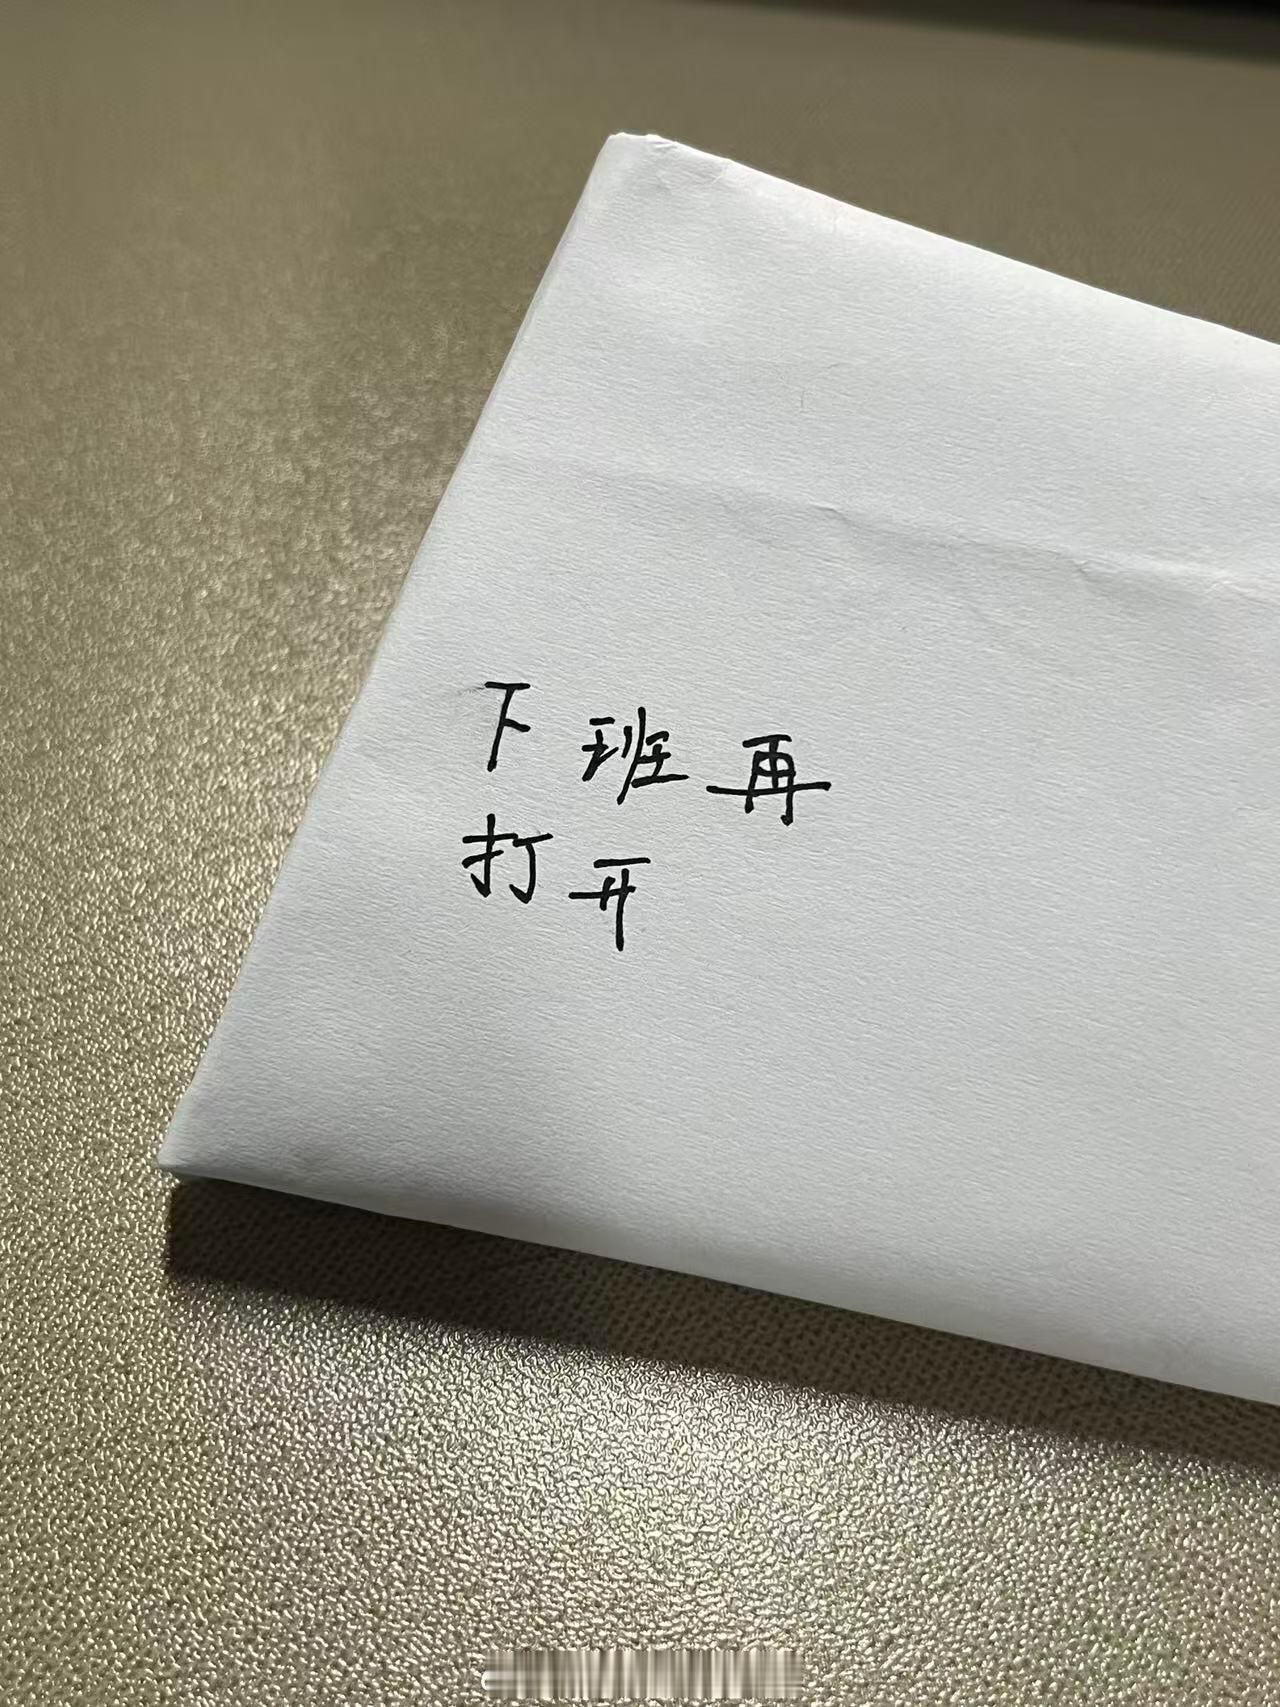 下班再
打开